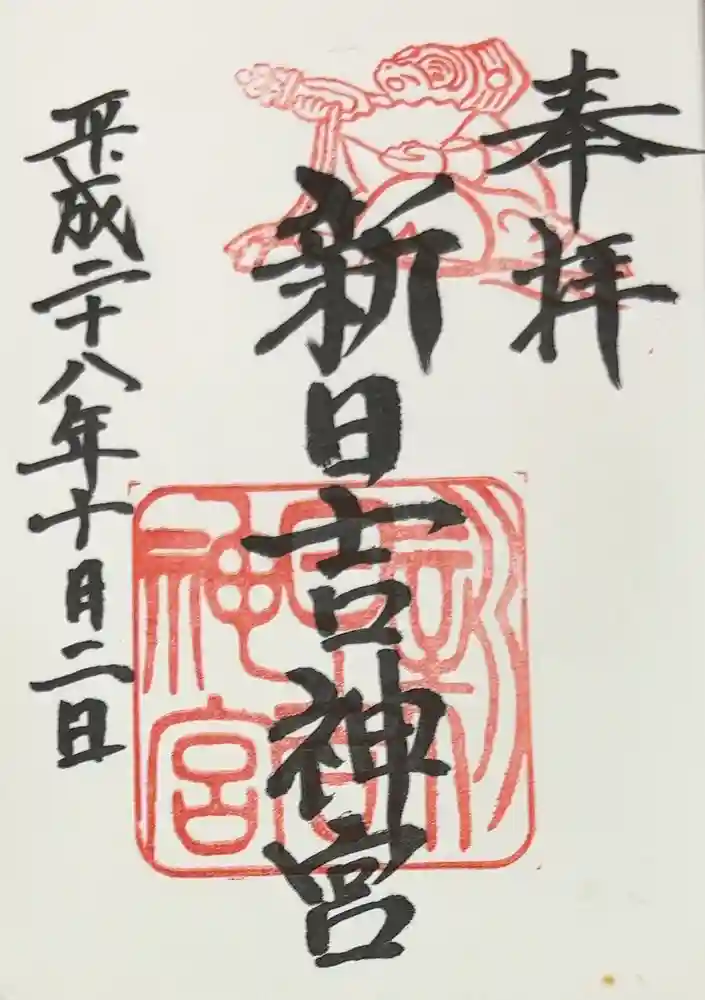 奉拝
新日吉神宮
平成二十八年十月二日
新日吉神宮